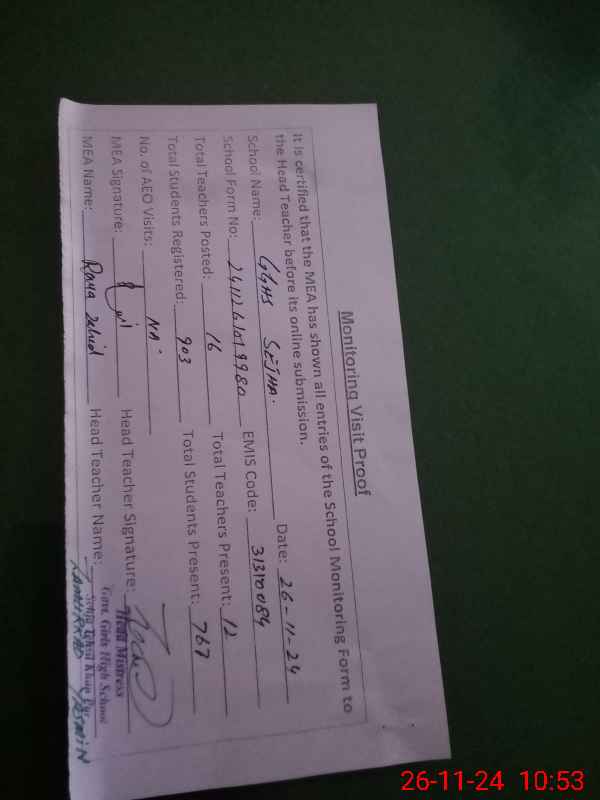 Monitoring Visit Proof
It is certified that the MEA has shown all entries of the School Monitoring Form to
the Head Teacher before its online submission.
Date: 26-11-24
School Name: GGHS SEJHA.
EMIS Code: 31310084
School Form No:
Total Teachers Posted: 16 Total Teachers Present: 12
Total Students Registered: 903 Total Students Present: 767
No. of AEO Visits: NA.
MEA Signature: Head Teacher Signature:
Head Mistress
Govt. Girls High School
MEA Name: Head Teacher Name:
YASMIN
26-11-24 10:53